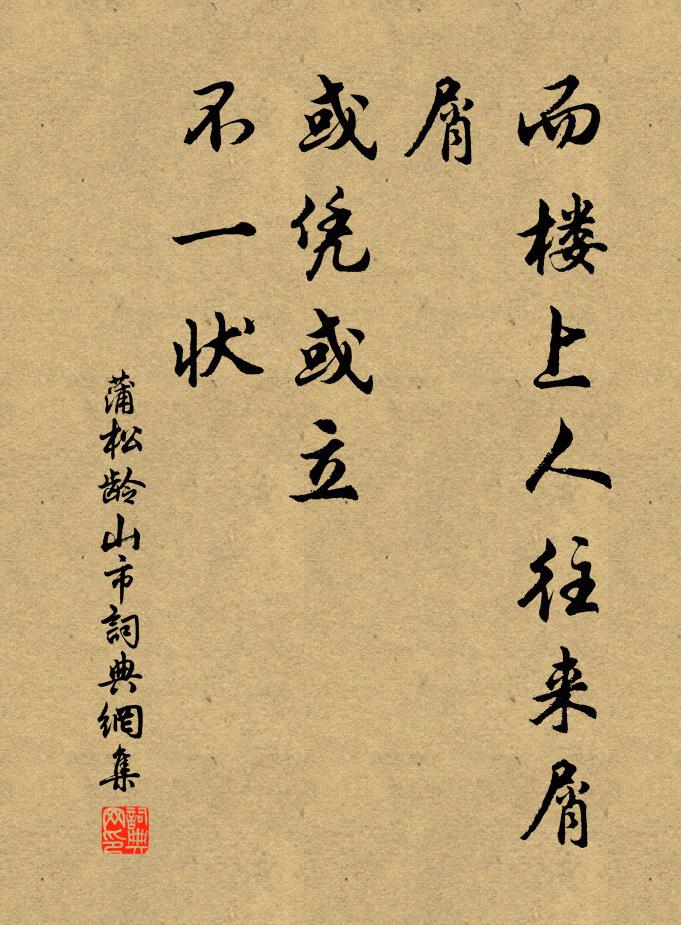 而楼上人往来屑
屑
或凭或立
不一状
蒲松龄山市詞典網集
詞典
网印